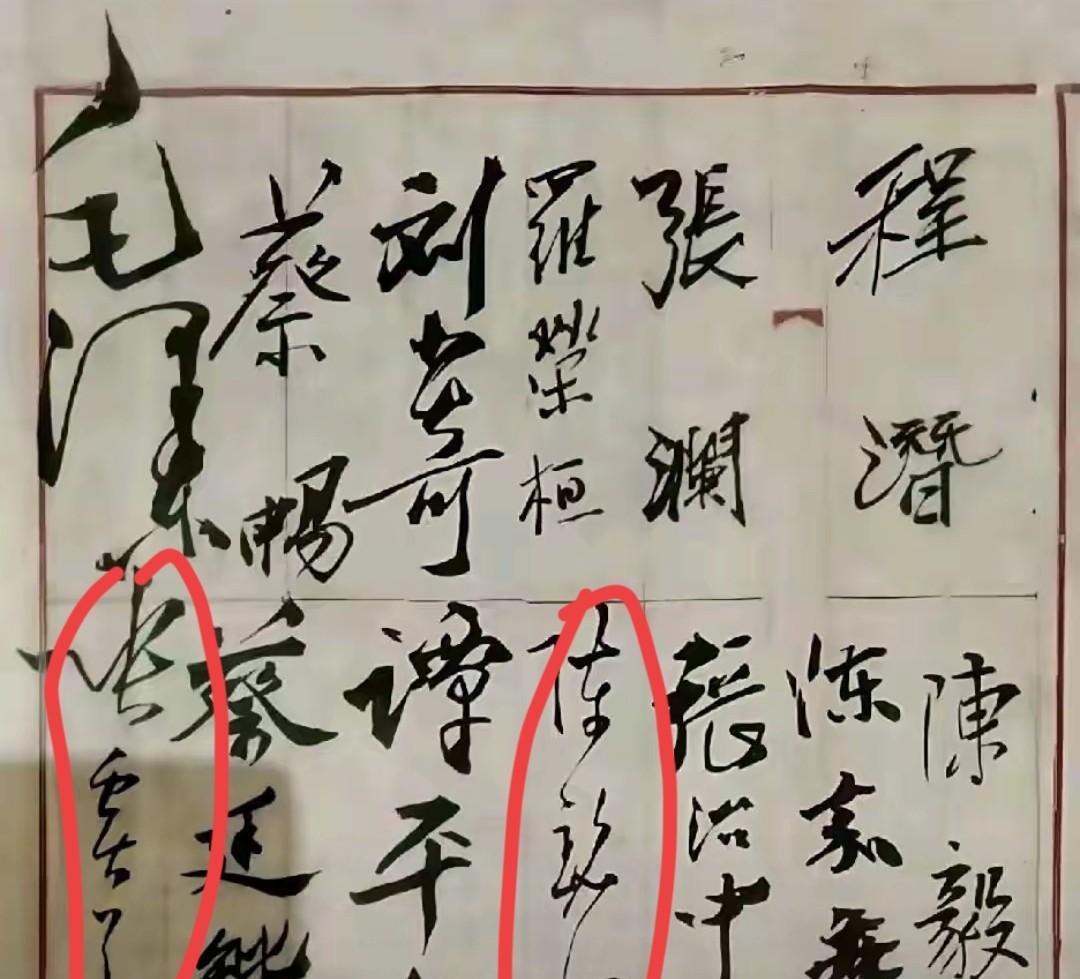 程潛
張瀾
羅榮桓
刘少奇
蔡暢
毛泽东
陳毅
陈嘉庚
張治中
陈
譚平
蔡廷鍇
張